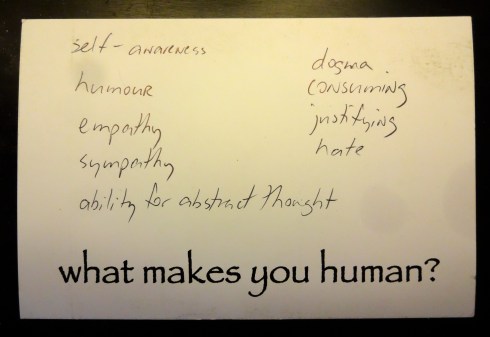 self-awareness
humour
empathy
sympathy
ability for abstract thought
dogma
consuming
justifying
hate
what makes you human?